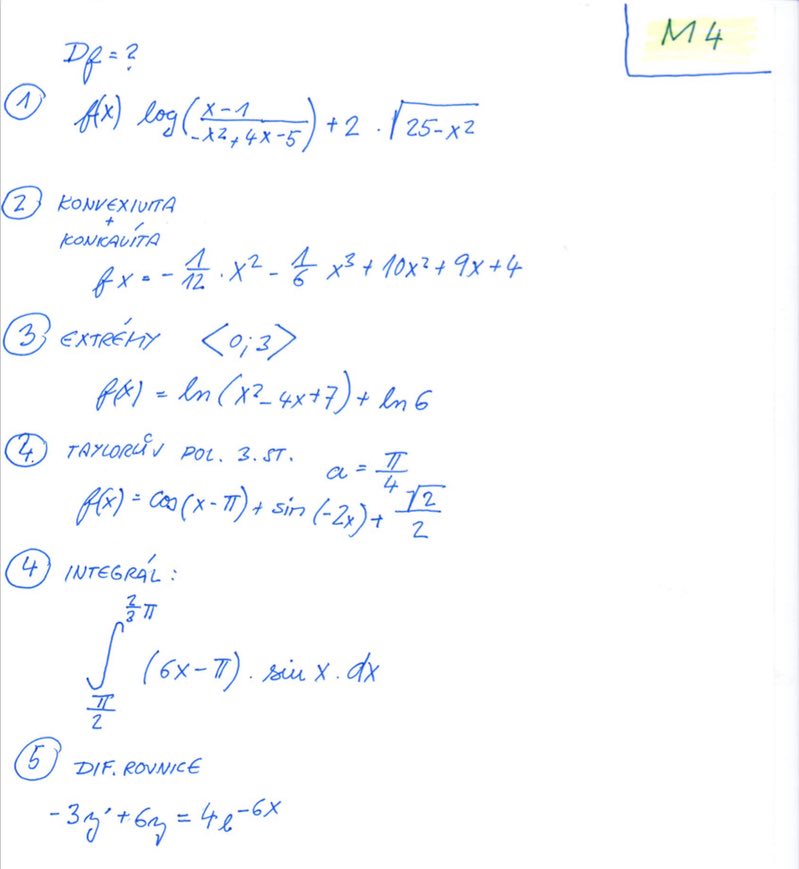 M4
Df = ?
① f(x) log(x-1/-x²+4x-5) + 2 · √25-x²
② KONVEXIVITA
+
KONKÁVITA
fx = - 1/12 · x² - 1/6 x³ + 10x² + 9x + 4
③ EXTRÉMY <0;3>
f(x) = ln(x²-4x+7) + ln 6
④ TAYLORŮV POL. 3. ST. a = π/4
f(x) = cos(x-π) + sin(-2x) + √2/2
④ INTEGRÁL:
∫ π/2 2/3π (6x-π) · sin x · dx
⑤ DIF. ROVNICE
-3y' + 6y = 4e^-6x